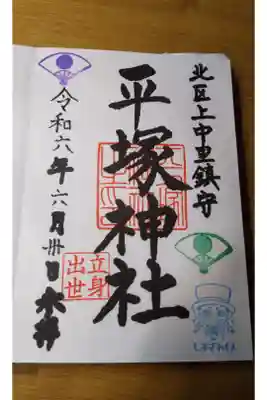 北区上中里鎮守
平塚神社
立身
出世
令和六年六月卅日